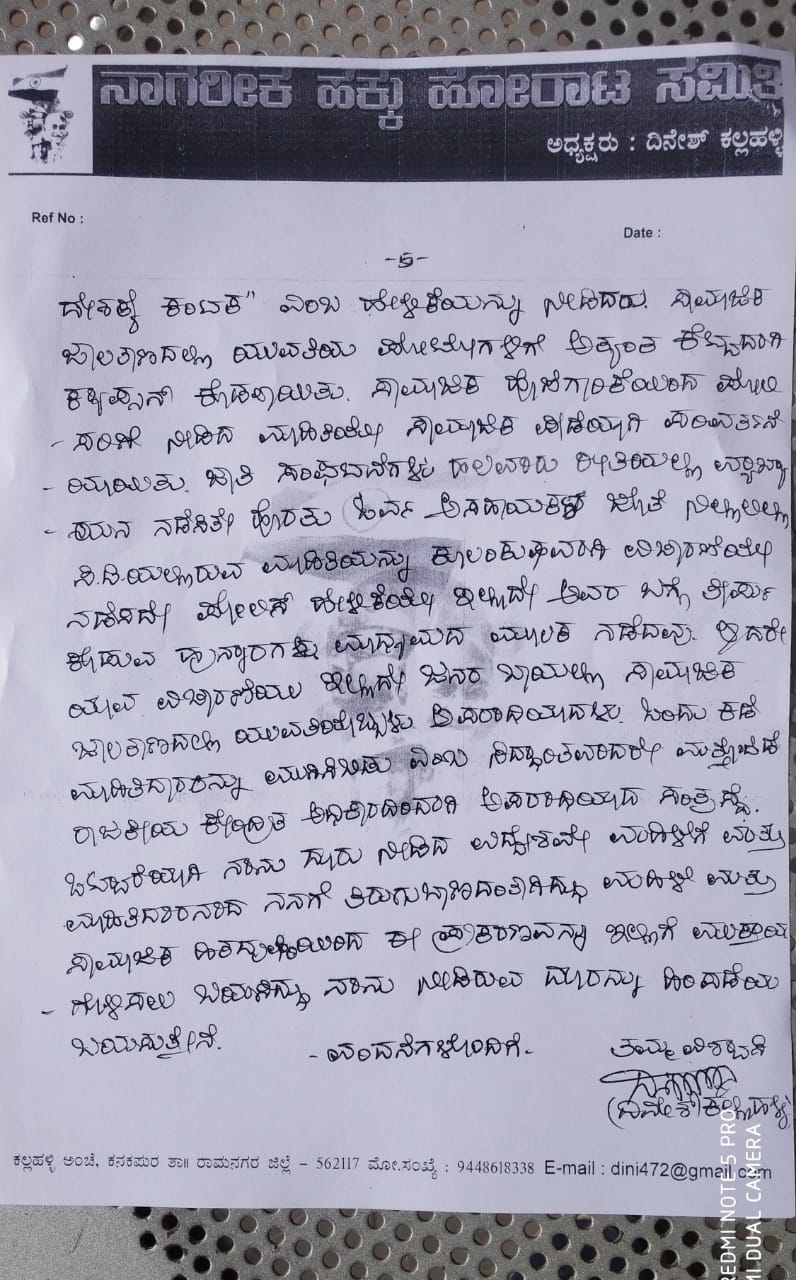 ನಾಗರೀಕ ಹಕ್ಕು ಹೋರಾಟ ಸಮಿತಿ
ಅಧ್ಯಕ್ಷರು : ದಿನೇಶ್ ಕಲ್ಲಹಳ್ಳಿ
Ref No :
Date :
-5-
ದೇಶಕ್ಕೆ ಕಂಟಕ" ಎಂಬ ಹೇಳಿಕೆಯನ್ನು ನೀಡಿದರು. ಸಾಮಾಜಿಕ
ಜಾಲತಾಣದಲ್ಲಿ ಯುವತಿಯ ಫೋಟೋಗಳಿಗೆ ಅತ್ಯಂತ ಕೆಟ್ಟದಾಗಿ
ಕ್ಯಾಪ್ಷನ್ ಕೊಡಲಾಯಿತು. ಸಾಮಾಜಿಕ ಹೊಣೆಗಾರಿಕೆಯಿಂದ ಪೋಲಿ
- ಸರಿಗೆ ನೀಡಿದ ಮಾಹಿತಿಯೇ ಸಾಮಾಜಿಕ ಪೀಡೆಯಾಗಿ ಪರಿವರ್ತನೆ
- ಯಾಯಿತು. ಜಾತಿ ಸಂಘಟನೆಗಳು ಹಲವಾರು ರೀತಿಯಲ್ಲಿ ವ್ಯಾಖ್ಯಾ
- ಯನ ನಡೆಸಿತೇ ಹೊರತು ಓರ್ವ ಅಸಹಾಯಕಳ ಜೊತೆ ನಿಲ್ಲಲಿಲ್ಲ
ಸಿ.ಡಿ.ಯಲ್ಲಿರುವ ಮಾಹಿತಿಯನ್ನು ಕೂಲಂಕುಷವಾಗಿ ವಿಚಾರಣೆಯೇ
ನಡೆಸದೇ ಪೋಲಿಸ್ ಹೇಳಿಕೆಯೇ ಇಲ್ಲದೇ ಅವರ ಬಗ್ಗೆ ತೀರ್ಪು
ಕೊಡುವ ಹುನ್ನಾರಗಳು ಮಾಧ್ಯಮದ ಮೂಲಕ ನಡೆದವು. ಆದರೇ
ಯಾವ ವಿಚಾರಣೆಯು ಇಲ್ಲದೇ ಜನರ ಬಾಯಲ್ಲಿ ಸಾಮಾಜಿಕ
ಜಾಲತಾಣದಲ್ಲಿ ಯುವತಿಯೊಬ್ಬಳು ಅಪರಾಧಿಯಾದಳು. ಒಂದು ಕಡೆ
ಮಾಹಿತಿದಾರರನ್ನು ಮುಗಿಸಬೇಕು ಎಂಬ ಸಿದ್ಧಾಂತವಾದರೇ ಮತ್ತೊಂದೆಡೆ
ರಾಜಕೀಯ ಕೇಂದ್ರಿತ ಅಧಿಕಾರದಿಂದಾಗಿ ಅಪರಾಧಿಯಾದ ಸಂತ್ರಸ್ಥೆ.
ಒಟ್ಟಾರೆಯಾಗಿ ನಾನು ದೂರು ನೀಡಿದ ಉದ್ದೇಶವೇ ಮಹಿಳೆಗೆ ಮತ್ತು
ಮಾಹಿತಿದಾರನಾದ ನನಗೆ ತಿರುಗುಬಾಣದಂತಾಗಿದ್ದು ಮಹಿಳೆ ಮತ್ತು
ಸಾಮಾಜಿಕ ಹಿತದೃಷ್ಟಿಯಿಂದ ಈ ಪ್ರಕರಣವನ್ನು ಇಲ್ಲಿಗೆ ಮುಕ್ತಾಯ
- ಗೊಳಿಸಲು ಬಯಸಿದ್ದು ನಾನು ನೀಡಿರುವ ದೂರನ್ನು ಹಿಂಪಡೆಯ
ಬಯಸುತ್ತೇನೆ.
- ವಂದನೆಗಳೊಂದಿಗೆ -
ತಮ್ಮ ವಿಶ್ವಾಸಿ
(ದಿನೇಶ್ ಕಲ್ಲಹಳ್ಳಿ)
ಕಲ್ಲಹಳ್ಳಿ ಅಂಚೆ, ಕನಕಪುರ ತಾ॥ ರಾಮನಗರ ಜಿಲ್ಲೆ – 562117 ಮೋ.ಸಂಖ್ಯೆ : 9448618338 E-mail : dini472@gmail.com
REDMI NOTE 5 PRO
MI DUAL CAMERA